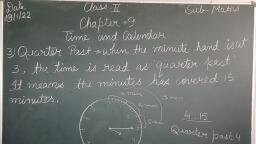 Date
19/1/22
Class II
Sub- Maths
Chapter - 9
Time and Calendar
3) Quarter Past = when the minute hand is at
3, the time is read as quarter past
It means the minutes has covered 15
minutes.
4 : 15
Quarter past 4